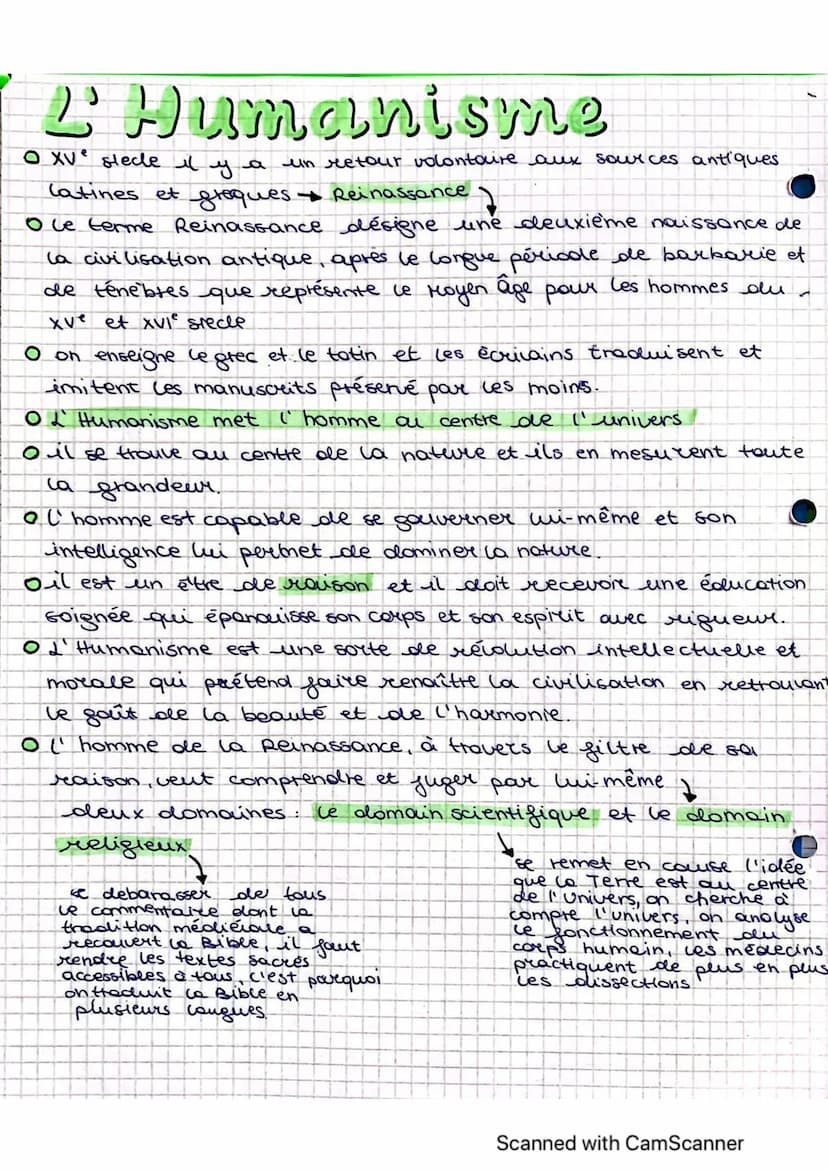 L' Humanisme
XVe siecle il y a un retour volontaire aux sources antiques
latines et greques → Reinassance
Le terme Reinassance désigne une deuxième naissance de
la civilisation antique, après le longue période de barbarie et
de ténèbres que représente le Moyen Âge pour les hommes du
XVe et XVIe siecle
on enseigne le grec et le latin et les écrivains traduisent et
imitent les manuscrits préservé par les moins.
L'Humanisme met l'homme au centre de l'univers
il se trouve au centre de la nature et ils en mesurent toute
la grandeur.
L'homme est capable de se gouverner lui-même et son
intelligence lui permet de dominer la nature.
il est un être de raison et il doit recevoir une éducation
soignée qui épanouisse son corps et son espirit avec rigueur.
L'Humanisme est une sorte de révolution intellectuelle et
morale qui prétend faire renaître la civilisation en retrouvant
le goût de la beauté et de l'harmonie.
L'homme de la Reinassance, à travers le filtre de sa
raison, veut comprendre et juger par lui-même
deux domaines: le domain scientifique et le domain
religieux
se debarasser de tous
le commentaire dont la
tradition médiévale a
recouvert la Bible, il faut
rendre les textes sacrés
accessibles à tous, c'est parquoi
on traduit la Bible en
plusieurs langues
se remet en cause l'idée
que la Terre est au centre
de l'Univers, on cherche à
compre l'univers, on analyse
le fonctionnement du
corps humain, les médecins
practiquent de plus en plus
les dissections
Scanned with CamScanner